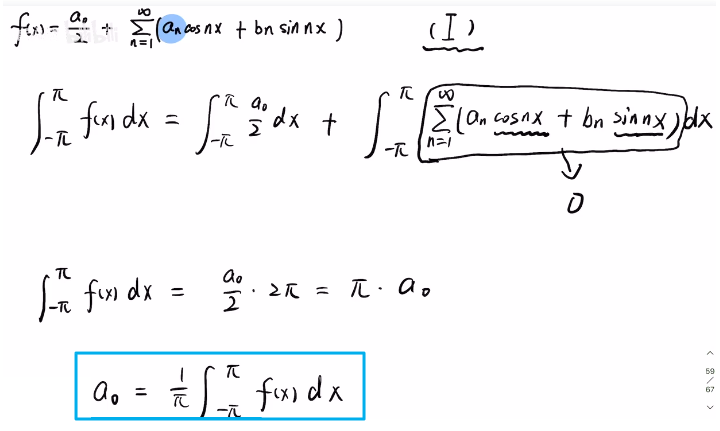 f(x) = a₀/2 + ∑_{n=1}^{∞} (aₙ cos nx + bn sin nx) (I)
∫_{-π}^{π} f(x) dx = ∫_{-π}^{π} a₀/2 dx + ∫_{-π}^{π} ∑_{n=1}^{∞} (aₙ cosnx + bn sin nx) dx
0
∫_{-π}^{π} f(x) dx = a₀/2 · 2π = π · a₀
a₀ = 1/π ∫_{-π}^{π} f(x) dx
59
/
67